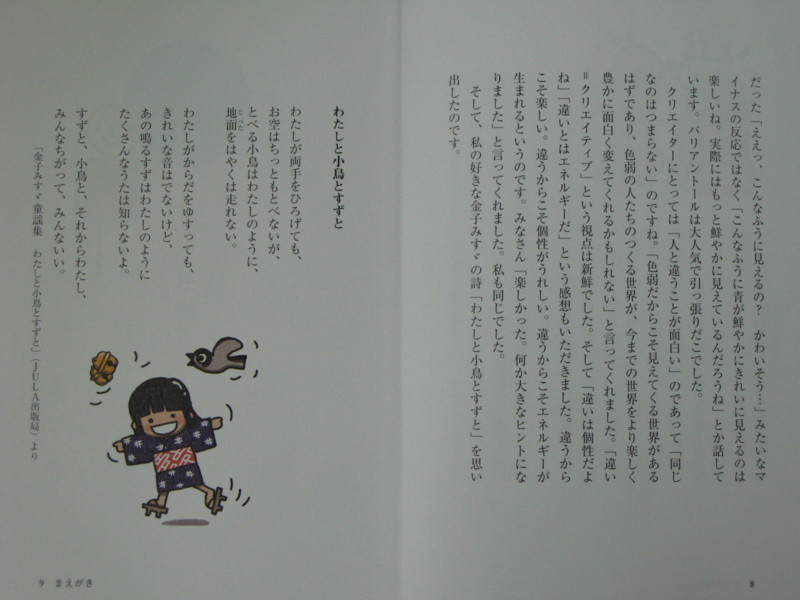 だった「ええっ、こんなふうに見えるの？　かわいそう…」みたいなマ
イナスの反応ではなく「こんなふうに青が鮮やかにきれいに見えるのは
楽しいね。実際にはもっと鮮やかに見えているんだろうね」とか話して
います。バリアントールは大人気で引っ張りだこでした。
　クリエイターにとっては「人と違うことが面白い」のであって「同じ
なのはつまらない」のですね。「色弱だからこそ見えてくる世界がある
はずであり、色弱の人たちのつくる世界が、今までの世界をより楽しく
豊かに面白く変えてくれるかもしれない」と言ってくれました。「違い
＝クリエイティブ」という視点は新鮮でした。そして「違いは個性だよ
ね」「違いとはエネルギーだ」という感想もいただきました。違うから
こそ楽しい。違うからこそ個性がうれしい。違うからこそエネルギーが
生まれるというのです。みなさん「楽しかった。何か大きなヒントにな
りました」と言ってくれました。私も同じでした。
　そして、私の好きな金子みすゞの詩「わたしと小鳥とすずと」を思い
出したのです。
8
わたしと小鳥とすずと
わたしが両手をひろげても、
お空はちっともとべないが、
とべる小鳥はわたしのように、
地面をはやくは走れない。
じべた
わたしがからだをゆすっても、
きれいな音はでないけど、
あの鳴るすずはわたしのように
たくさんなうたは知らないよ。
すずと、小鳥と、それからわたし、
みんなちがって、みんないい。
「金子みすゞ童謡集　わたしと小鳥とすずと」（JULA出版局）より
9　まえがき